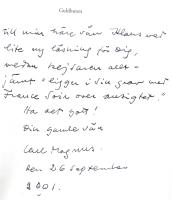 Guldlunnen
till min käre vän Klaus med
lite ny läsning för Dig,
medan
jämt "ligger i sin grav med
France Soir över ansiktet."
Ha det gott!
Din gamle vän
Carl Magnus.
den 26 September
2001.